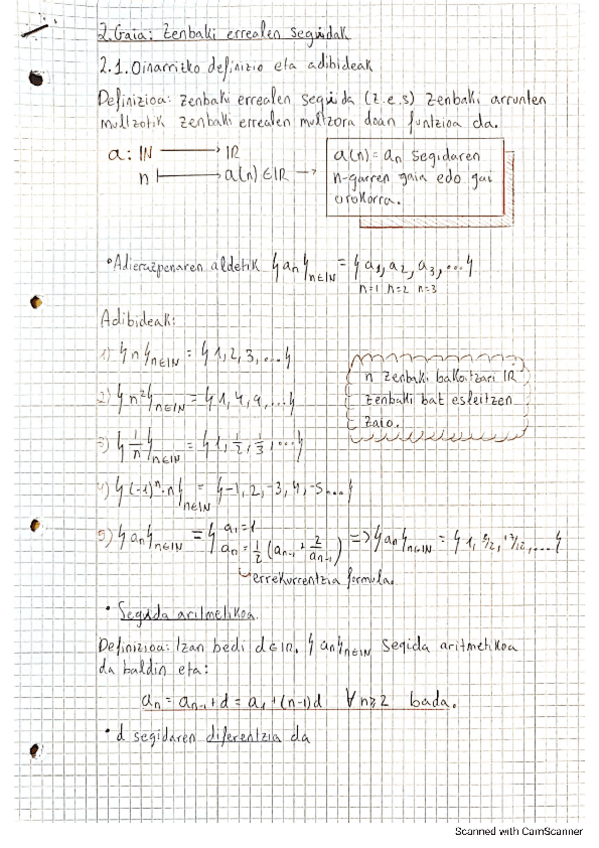 2. Gaia: Zenbaki errealen seguidak
2.1. Oinarrizko definizio eta adibideak
Definizioa: Zenbaki errealen seguida (z.e.s) zenbaki arrunten
multzotik zenbaki errealen multzora doan funtzioa da.
a: IN ⟶ IR
n ⟼ a(n) ∈ IR →
a(n) = aₙ segidaren
n-garren gaia edo gai
orokorra.
• Adierazpenaren aldetik {aₙ}ₙ∈IN = {a₁, a₂, a₃, ...}
n=1 n=2 n=3
Adibideak:
1) {n}ₙ∈IN = {1, 2, 3, ...}
2) {n²}ₙ∈IN = {1, 4, 9, ...}
3) {1/n}ₙ∈IN = {1, 1/2, 1/3, ...}
4) {(-1)ⁿ·n}ₙ∈IN = {-1, 2, -3, 4, -5...}
n zenbaki bakoitzari IR
zenbaki bat esleitzen
zaio.
5) {aₙ}ₙ∈IN = { a₁ = 1
aₙ = 1/2 (aₙ₋₁ + 2/aₙ₋₁) => {aₙ}ₙ∈IN = {1, 3/2, 17/12, ...}
errekurrentzia formula.
• Seguida aritmetikoa
Definizioa: Izan bedi d ∈ IR. {aₙ}ₙ∈IN segida aritmetikoa
da baldin eta:
aₙ = aₙ₋₁ + d = a₁ + (n-1)d ∀n≥2 bada.
• d segidaren diferentzia da
Scanned with CamScanner